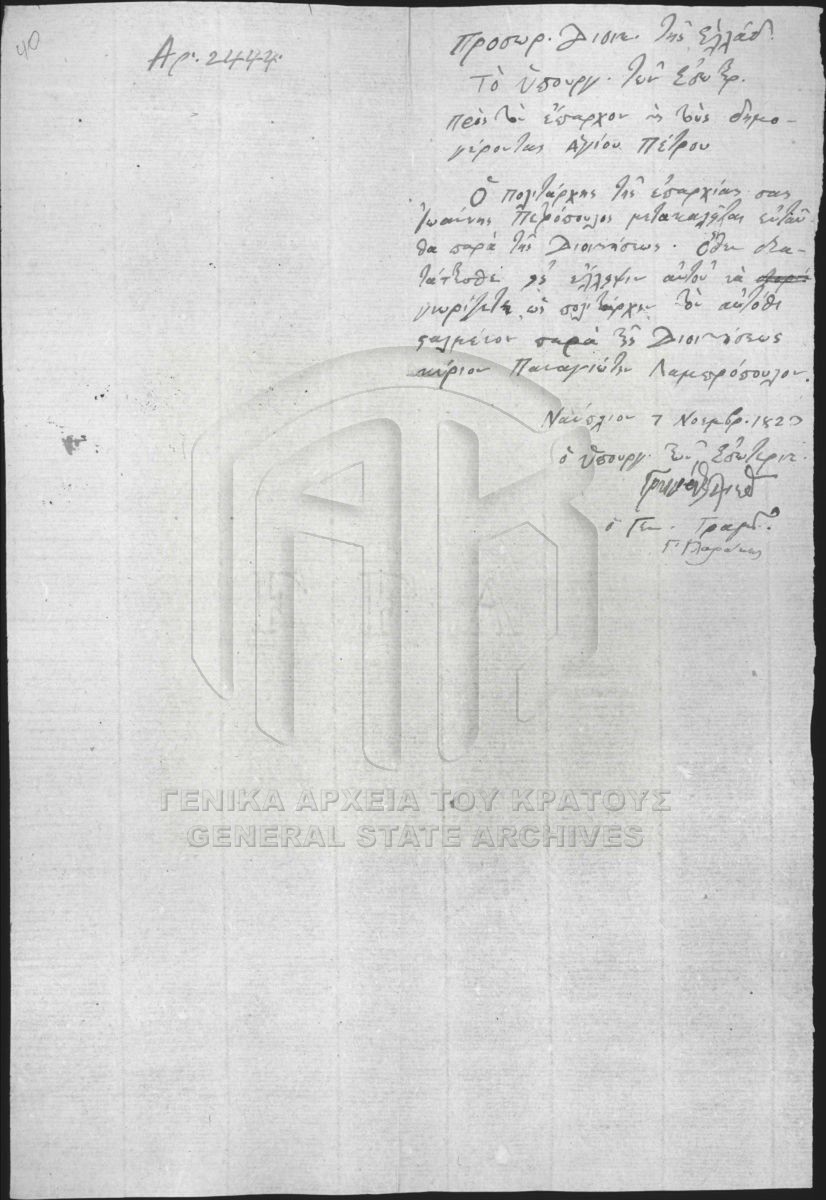 40
Αρ. 2444.
Προσωρ. Διοικ. τῆς Ἑλλάδ.
Τὸ Ὑπουργ. τῶν Ἐσωτερ.
Πρὸς τὸν ἔπαρχον καὶ τοὺς δημο-
γέροντας Ἁγίου Πέτρου
Ὁ πολιτάρχης τῆς ἐπαρχίας σας
Ἰωάννης μετακαλῆται ἐνταῦ-
θα παρὰ τῆς Διοικήσεως. Ὅθεν δια-
τάττεσθε εἰς ἔλλειψιν αὐτοῦ νὰ
γνωρίζετε ὡς πολιτάρχην τὸν αὐτόθι
σταλμένον παρὰ τῆς Διοικήσεως
κύριον Παναγιώτην Λαμπρόπουλον.
Ναύπλιον 7 Νοεμβρ. 1823
ὁ Ὑπουργ. τῶν Ἐσωτερικ.
ὁ Γεν. Γραμμ.
Γ. Γλαράκης
ΓΕΝΙΚΑ ΑΡΧΕΙΑ ΤΟΥ ΚΡΑΤΟΥΣ
GENERAL STATE ARCHIVES